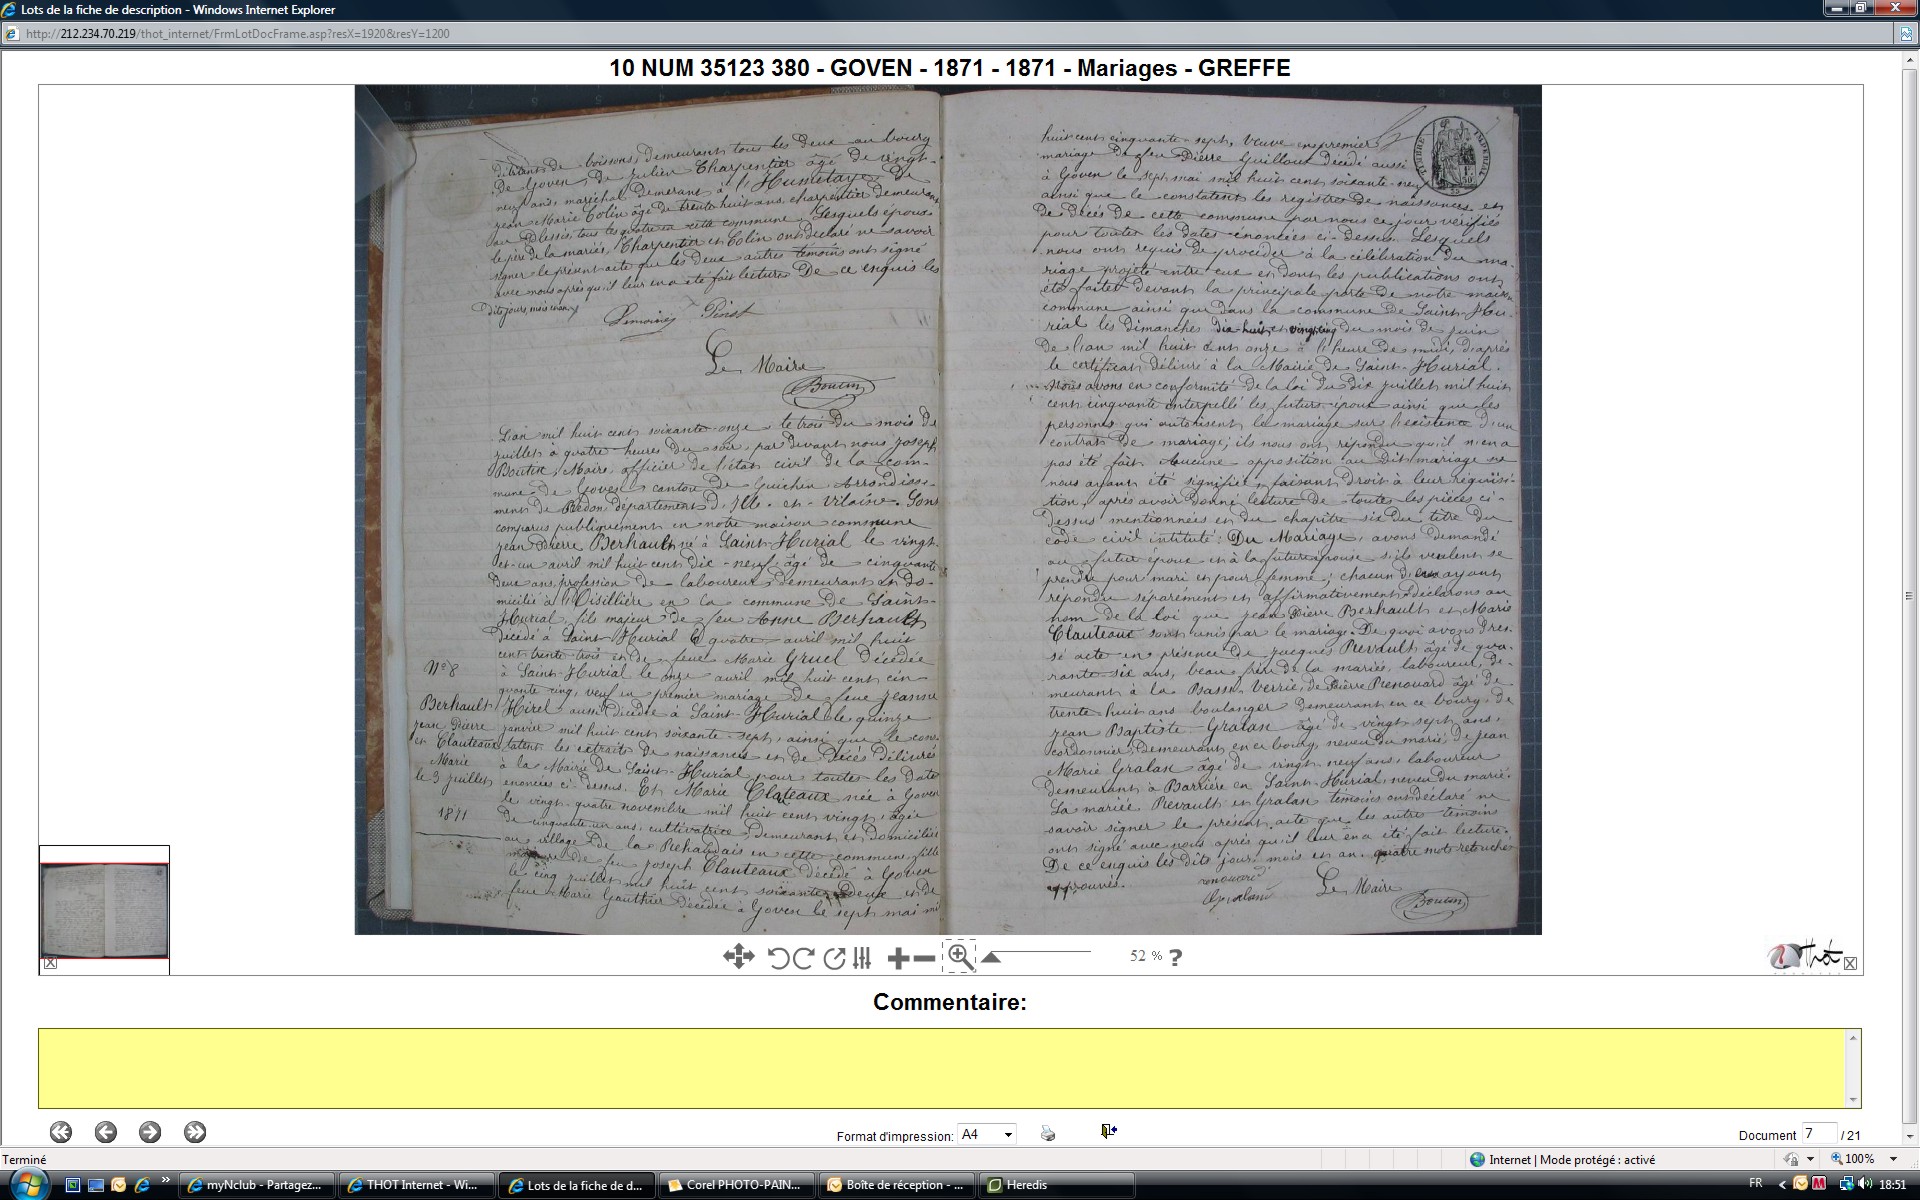 Lots de la fiche de description - Windows Internet Explorer
http://212.234.70.219/thot_internet/FrmLotDocFrame.asp?resX=1920&resY=1200
10 NUM 35123 380 - GOVEN - 1871 - 1871 - Mariages - GREFFE
débitants de boissons, demeurant tous les deux au bourg
de Goven, de Julien Charpentier âgé de vingt-
neuf ans, maréchal demeurant à l'Humelaye, de
Jean Marie Colin âgé de trente huit ans, charpentier demeurant
au Plessis, tous les quatre en cette commune, Lesquels époux
le père de la mariée, Charpentier et Colin ont déclaré ne savoir
signer le présent acte que les deux autres témoins ont signé
avec nous après qu'il leur en a été fait lecture De ce enquis les
dits jours, mois et an
Lemoine Pinot
Le Maire
Boutin
L'an mil huit cent soixante-onze, le trois du mois de
juillet à quatre heures du soir, par devant nous Joseph
Boutin, Maire, officier de l'état civil de la com-
mune de Goven, canton de Guichen, Arrondisse-
ment de Redon, département d'Ille-et-Vilaine. Sont
comparus publiquement en notre maison commune
Jean Pierre Berhault né à Saint-Thurial le vingt-
et-un avril mil huit cent dix-neuf, âgé de cinquante
deux ans, profession de laboureur, demeurant et do-
micilié à l'Oisillière en la commune de Saint-
Thurial, fils majeur de feu Anne Berhault
décédé à Saint-Thurial le quatre avril mil huit
cent trente trois et de feue Marie Gruel décédée
à Saint-Thurial le onze avril mil huit cent cin
quante cinq, veuf en premier mariage de feue Jeanne
Hirel aussi décédée à Saint-Thurial le quinze
janvier mil huit cent soixante-sept, ainsi que le cons
tatent les extraits de naissances et de décès délivrés
à la Mairie de Saint-Thurial pour toutes les dates
énoncées ci-dessus. Et Marie Clauteaux née à Goven
le vingt-quatre novembre mil huit cent vingt, âgée
de cinquante un ans, cultivatrice, demeurant et domiciliée
au village de la Rehardais en cette commune, fille
majeure de feu Joseph Clauteaux décédé à Goven
le cinq juillet mil huit cent soixante deux et de
feue Marie Gauthier décédée à Goven le sept mai mil
N° 8
Berhault
Jean Pierre
et Clauteaux
Marie
le 3 juillet
1871
huit cent cinquante-sept, Veuve en premier
mariage de feu Pierre Guilloux décédé aussi
à Goven le sept mai mil huit cent soixante-neuf
ainsi que le constatent les registres de naissances et
de décès de cette commune par nous ce jour vérifiés
pour toutes les dates énoncées ci-dessus. Lesquels
nous ont requis de procéder à la célébration du ma-
riage projeté entre eux et dont les publications ont
été faites devant la principale porte de notre maison
commune ainsi que dans la commune de Saint-Thu-
rial les dimanches dix-huit et vingt-cinq du mois de juin
de l'an mil huit cent onze à l'heure de midi, d'après
le certificat délivré à la Mairie de Saint-Thurial.
Nous avons en conformité de la loi du dix juillet mil huit
cent cinquante interpellé les futurs époux ainsi que les
personnes qui autorisent le mariage sur l'existence d'un
contrat de mariage; ils nous ont répondu qu'il n'en a
pas été fait Aucune opposition au dit mariage ne
nous ayant été signifiée, faisant droit à leur réquisi-
tion, après avoir donné lecture de toutes les pièces ci-
dessus mentionnées et du chapitre six du titre du
code civil intitulé: Du Mariage, avons demandé
au futur époux et à la future épouse s'ils veulent se
prendre pour mari et pour femme; chacun d'eux ayant
répondu séparément et affirmativement déclarons au
nom de la loi que Jean Pierre Berhault et Marie
Clauteaux sont unis par le mariage. De quoi avons dres-
sé acte en présence de Jacques Prevault âgé de qua-
rante-six ans, beau frère de la mariée, laboureur, de-
meurant à la Basse Verrie, de Pierre Renouard âgé de
trente-huit ans boulanger demeurant en ce bourg, de
Jean Baptiste Gralan âgé de vingt sept ans,
cordonnier, demeurant en ce bourg, neveu du marié, de Jean
Marie Gralan âgé de vingt neuf ans, laboureur
demeurant à Barrière en Saint-Thurial neveu du marié.
La mariée Prevault et Gralan témoins ont déclaré ne
savoir signer le présent acte que les autres témoins
ont signé avec nous après qu'il leur en a été fait lecture.
De ce enquis les dits jour, mois et an. quatre mots retouchés
approuvés.
renouard
Le Maire
Boutin
TIMBRE IMPERIAL
52 %
Thot
Commentaire:
Format d'impression: A4
Document 7 / 21
Terminé
Internet | Mode protégé : activé
100%
myNclub - Partagez...
THOT Internet - Wi...
Lots de la fiche de d...
Corel PHOTO-PAIN...
Boîte de réception - ...
Heredis
FR
18:51